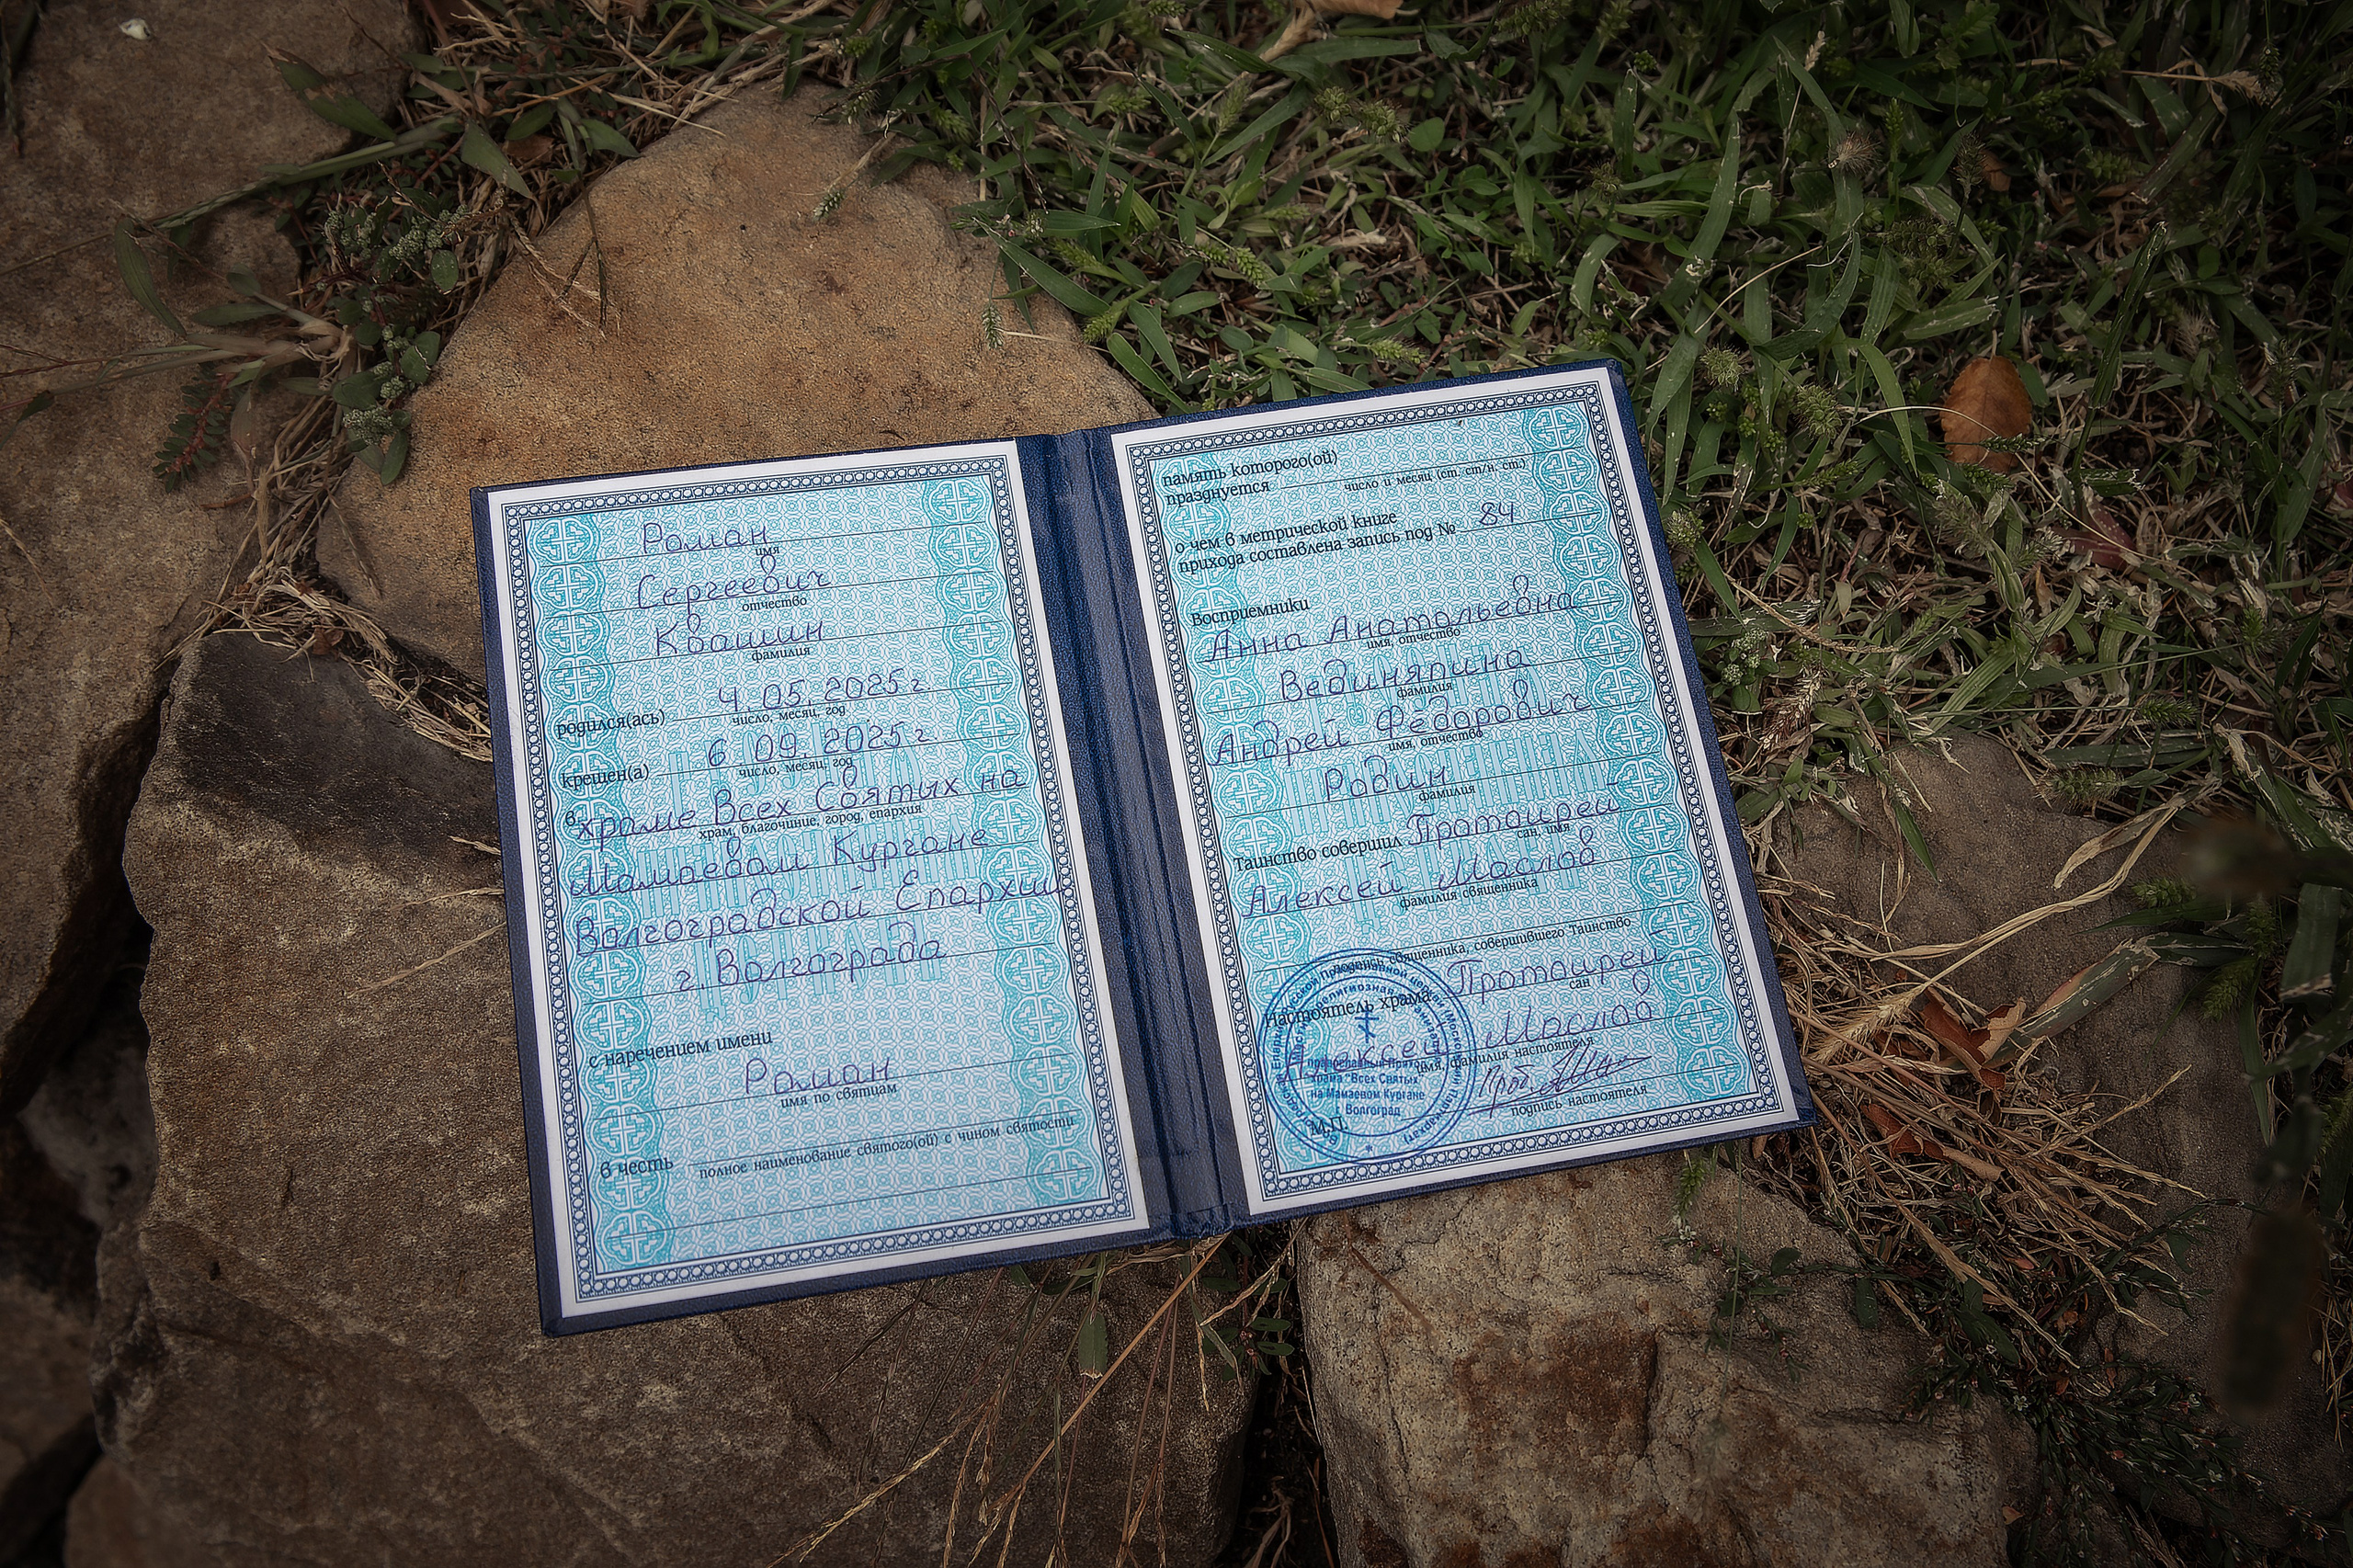 Роман
имя
Сергеевич
отчество
Квашин
фамилия
родился(ась) 4.05.2025 г.
число, месяц, год
крещен(а) 6 09. 2025 г
число, месяц, год
в храме Всех Святых на
храм, благочиние, город, епархия
Мамаевом Кургане
Волгоградской Епархии
г. Волгограда
с наречением имени
Роман
имя по святцам
в честь
полное наименование святого(ой) с чином святости
память которого(ой)
празднуется
число и месяц (ст. ст/н. ст.)
о чем в метрической книге
прихода составлена запись под № 84
Восприемники
Анна Анатольевна
имя, отчество
Вединяпина
фамилия
Андрей Федорович
имя, отчество
Родин
фамилия
Таинство совершил Протоирей
сан, имя
Алексей Маслов
фамилия священника
подпись священника, совершившего Таинство
Настоятель храма Протоирей
сан
Алексей Маслов
имя, фамилия настоятеля
Прот.
подпись настоятеля
православный Приход
храма "Всех Святых
на Мамаевом Кургане
г. Волгоград
М.П.